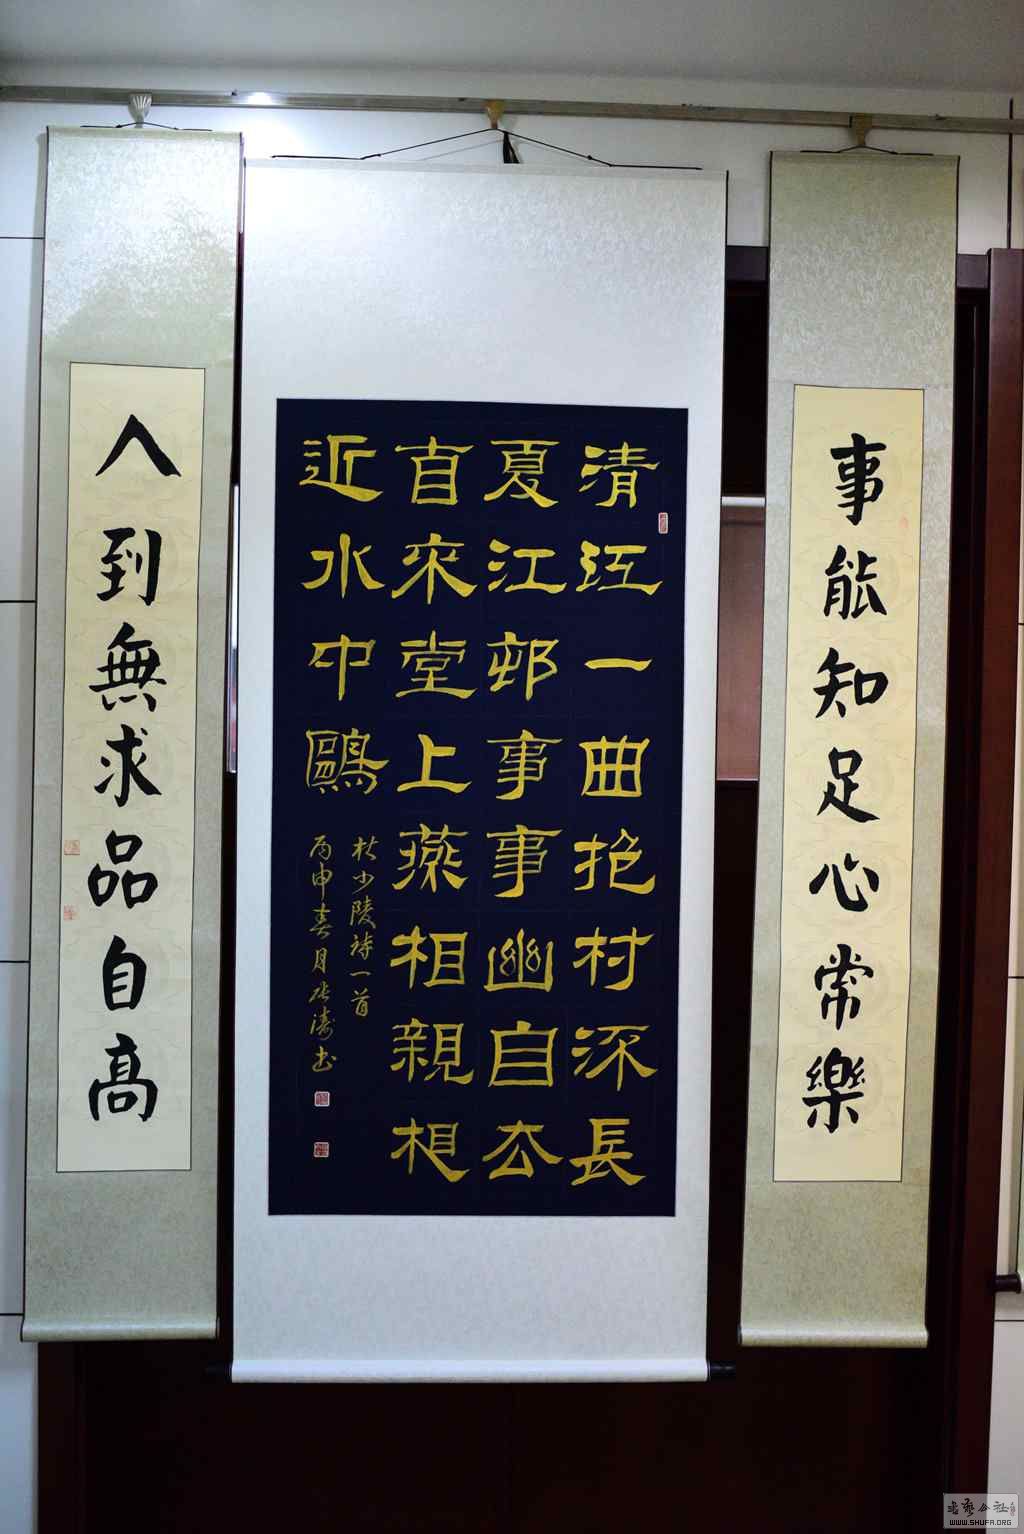 事能知足心常樂
清江一曲抱村流長
夏江邨事事幽自去
自來堂上燕相親相
近水中鷗
杜少陵詩一首
丙申春月張濤书
人到無求品自高
书艺公社
WWW.SHUFA.ORG